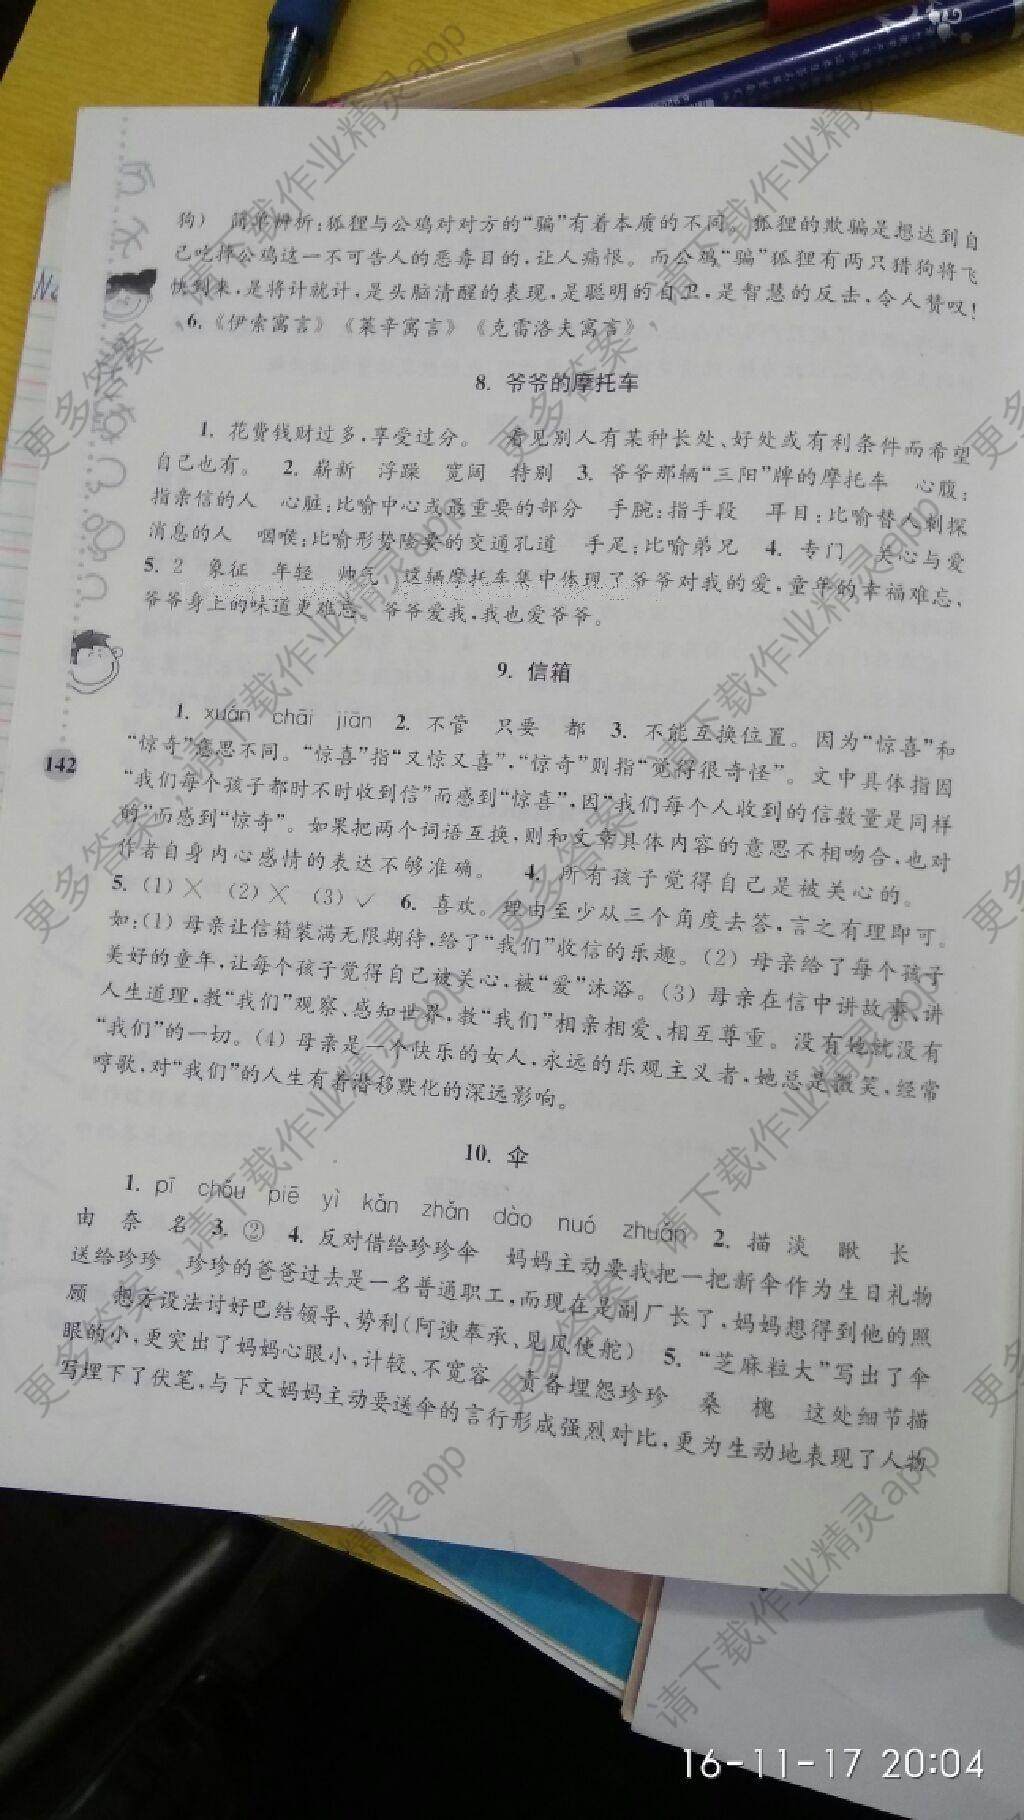 狗） 简单辨析：狐狸与公鸡对对方的“骗”有着本质的不同。狐狸的欺骗是想达到自
己吃掉公鸡这一不可告人的恶毒目的，让人痛恨。而公鸡“骗”狐狸有两只猎狗将飞
快到来，是将计就计，是头脑清醒的表现，是聪明的自卫，是智慧的反击，令人赞叹！
6.《伊索寓言》《莱辛寓言》《克雷洛夫寓言》
8. 爷爷的摩托车
1. 花费钱财过多，享受过分。 看见别人有某种长处、好处或有利条件而希望
自己也有。 2. 崭新 浮躁 宽阔 特别 3. 爷爷那辆“三阳”牌的摩托车 心腹：
指亲信的人 心脏：比喻中心或最重要的部分 手腕：指手段 耳目：比喻替人刺探
消息的人 咽喉：比喻形势险要的交通孔道 手足：比喻弟兄 4. 专门 关心与爱
5. 2 象征 年轻 帅气 这辆摩托车集中体现了爷爷对我的爱，童年的幸福难忘，
爷爷身上的味道更难忘，爷爷爱我，我也爱爷爷。
9. 信箱
1. xuán chāi jiān 2. 不管 只要 都 3. 不能互换位置。因为“惊喜”和
“惊奇”意思不同。“惊喜”指“又惊又喜”，“惊奇”则指“觉得很奇怪”。文中具体指因
“我们每个孩子都时不时收到信”而感到“惊喜”，因“我们每个人收到的信数量是同样
的”而感到“惊奇”。如果把两个词语互换，则和文章具体内容的意思不相吻合，也对
作者自身内心感情的表达不够准确。 4. 所有孩子觉得自己是被关心的。
5.（1）× （2）× （3）✓ 6. 喜欢。理由至少从三个角度去答，言之有理即可。
如：（1）母亲让信箱装满无限期待，给了“我们”收信的乐趣。（2）母亲给了每个孩子
美好的童年，让每个孩子觉得自己被关心，被“爱”沐浴。（3）母亲在信中讲故事、讲
人生道理，教“我们”观察、感知世界，教“我们”相亲相爱、相互尊重。没有她就没有
“我们”的一切。（4）母亲是一个快乐的女人，永远的乐观主义者，她总是微笑，经常
哼歌，对“我们”的人生有着潜移默化的深远影响。
142
10. 伞
1. pī chóu piē yì kǎn zhǎn dào nuó zhuǎn 2. 描 淡 瞅 长
由 奈 名 3. ② 4. 反对借给珍珍伞 妈妈主动要我把一把新伞作为生日礼物
送给珍珍 珍珍的爸爸过去是一名普通职工，而现在是副厂长了，妈妈想得到他的照
顾 想方设法讨好巴结领导、势利（阿谀奉承、见风使舵） 5. “芝麻粒大”写出了伞
眼的小，更突出了妈妈心眼小，计较、不宽容 责备埋怨珍珍 桑 槐 这处细节描
写埋下了伏笔，与下文妈妈主动要送伞的言行形成强烈对比，更为生动地表现了人物
更多答案，请下载作业精灵app
16-11-17 20:04